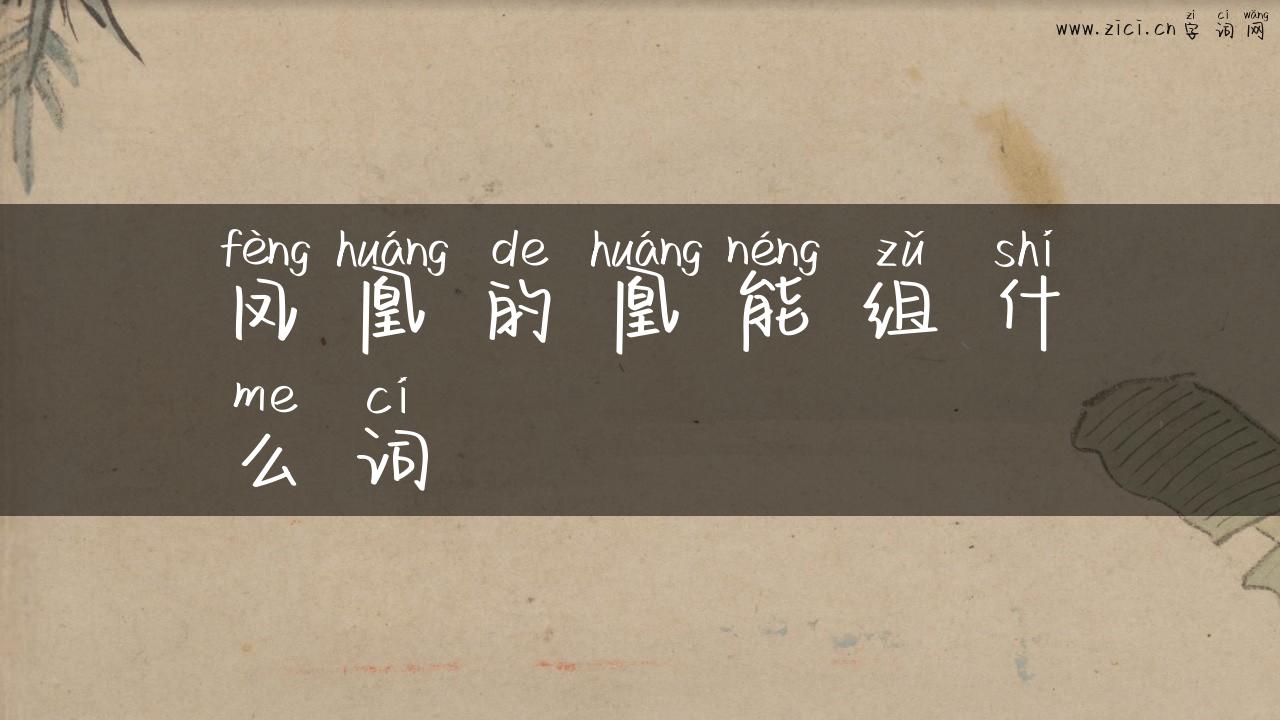 zì cí wǎng
www.zici.cn 字词网
fèng huáng de huáng néng zǔ shí
凤凰的凰能组什
me cí
么词